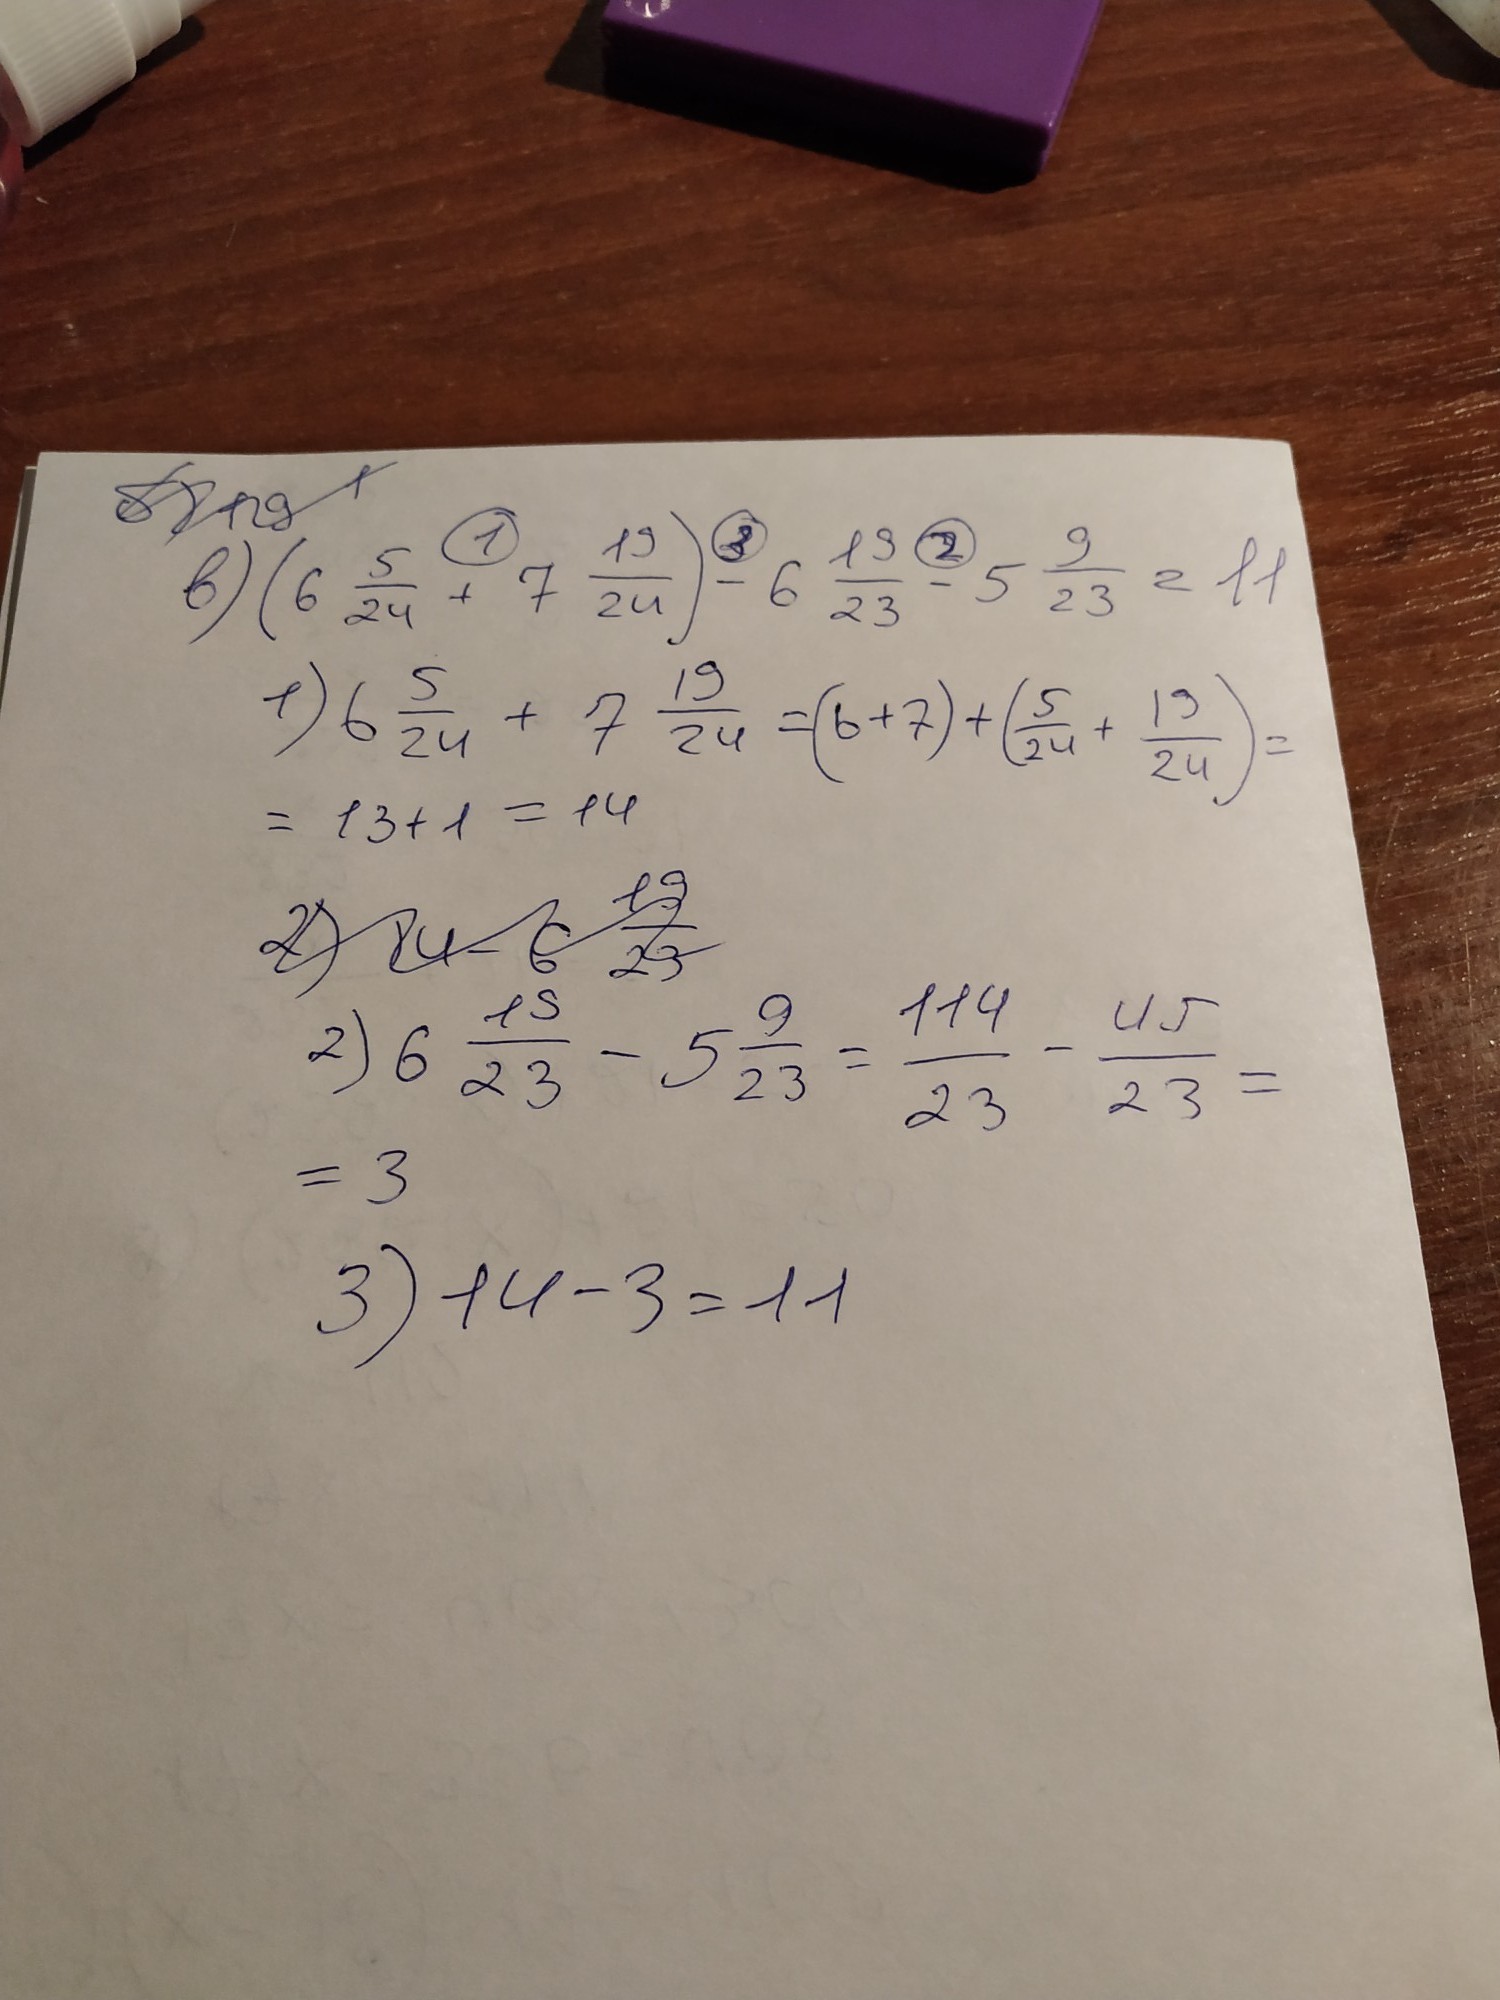 в) (6 5/24 + 7 19/24) - 6 19/23 - 5 9/23 = 11
① ③ ②
1) 6 5/24 + 7 19/24 = (6+7) + (5/24 + 19/24) =
= 13+1 = 14
2) 14 - 6 19/23
2) 6 19/23 - 5 9/23 = 114/23 - 45/23 =
= 3
3) 14 - 3 = 11